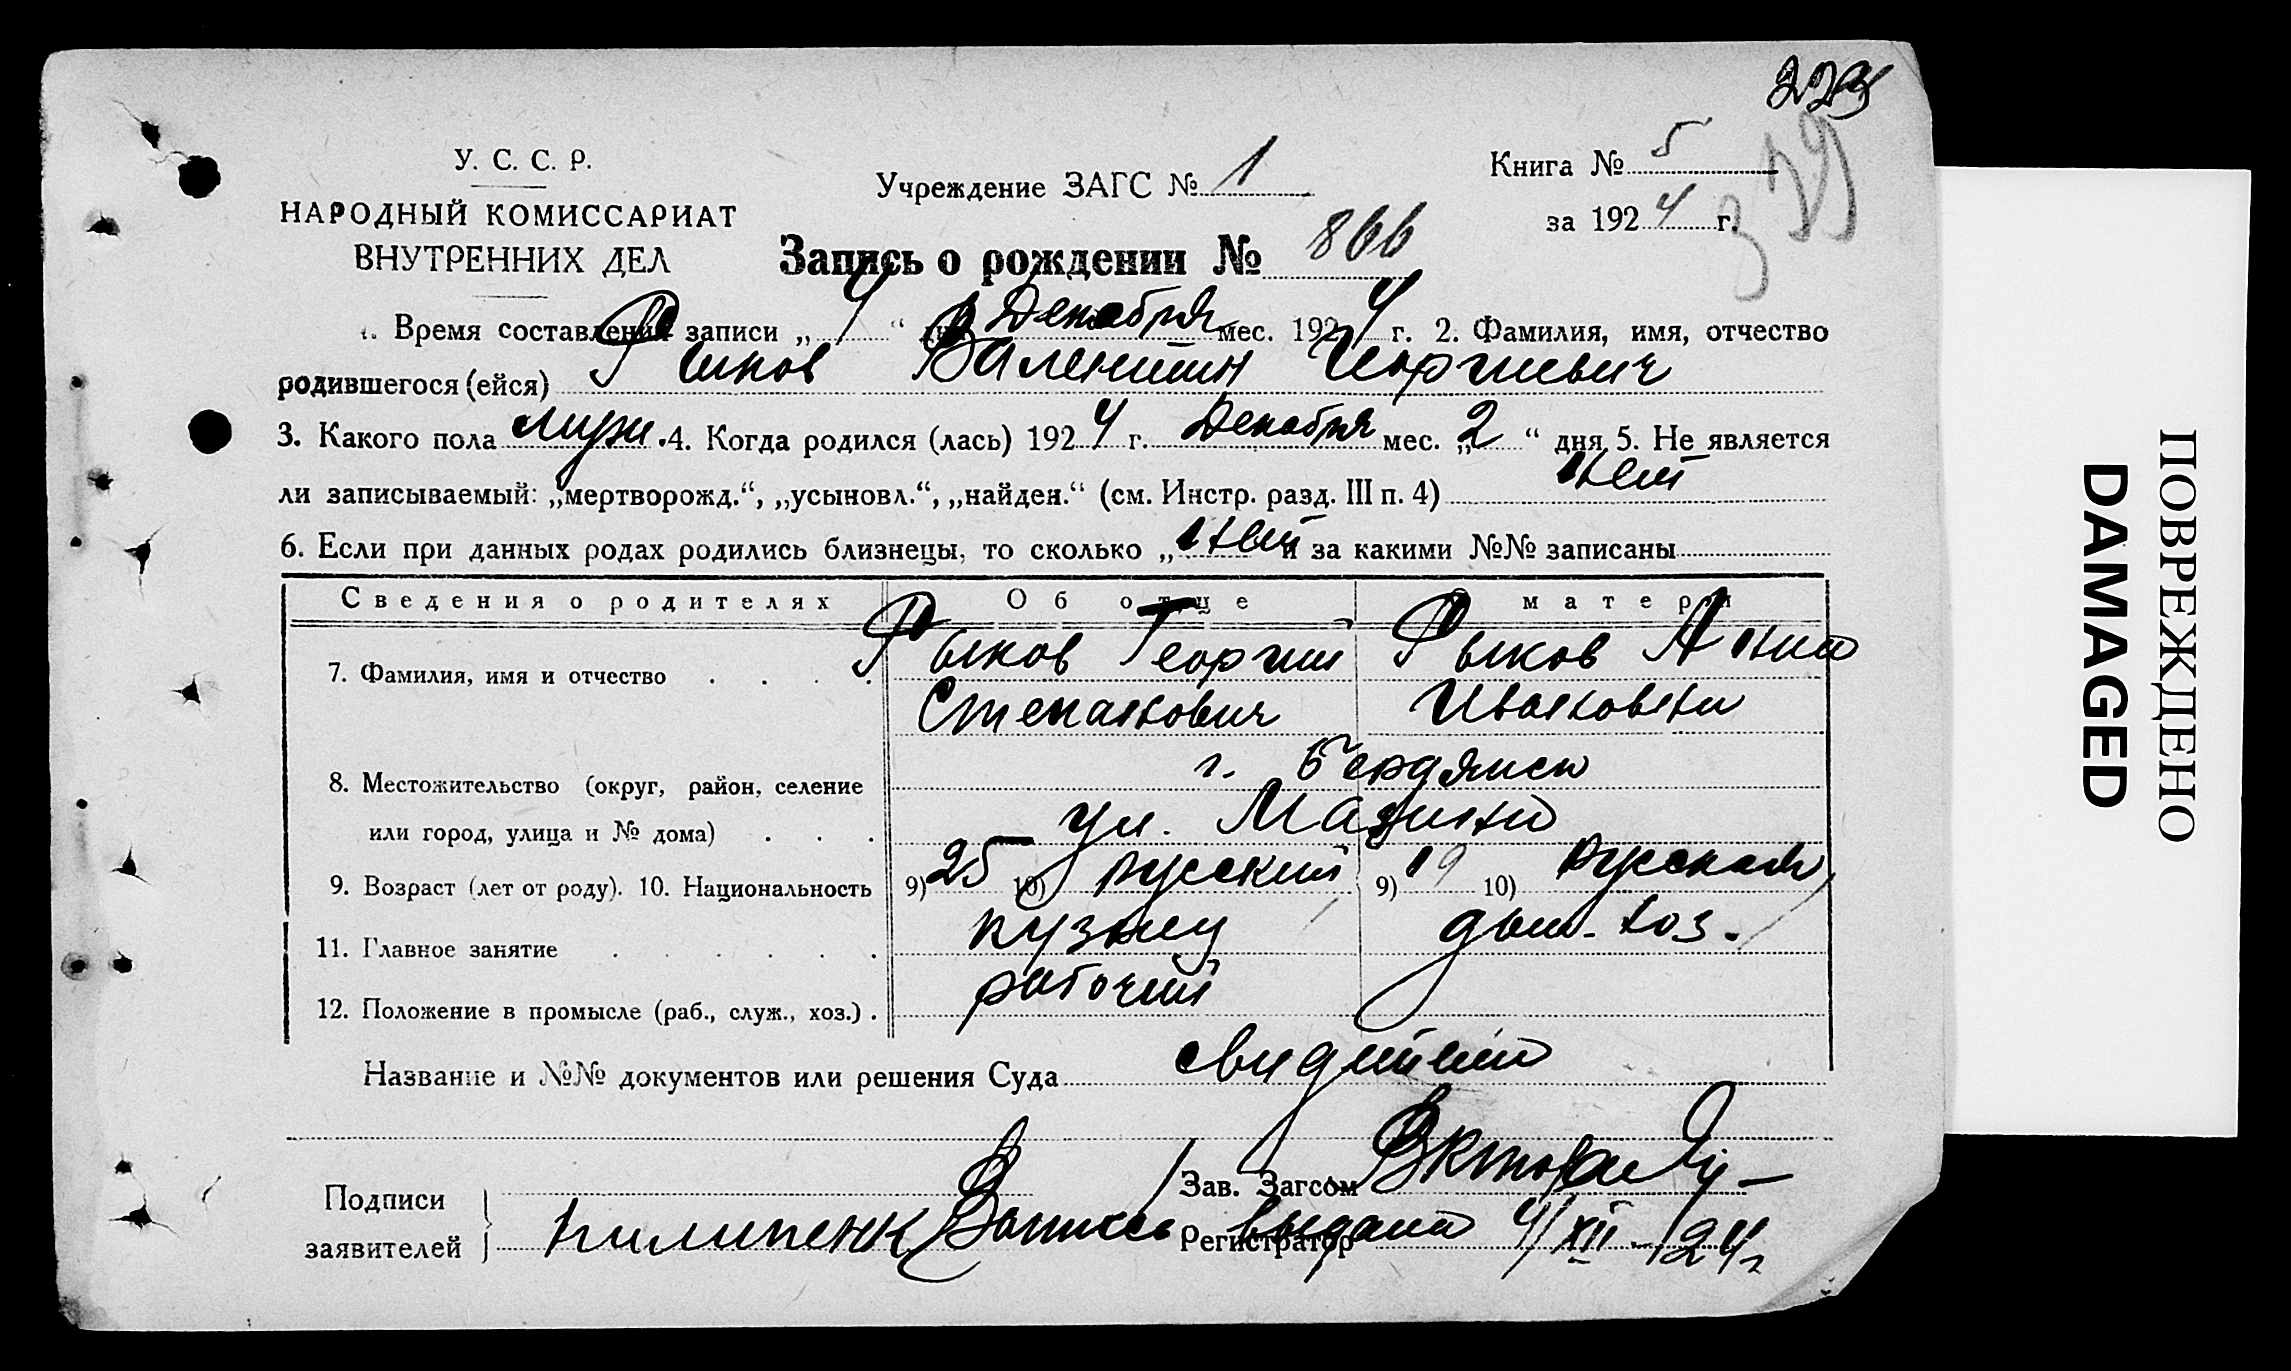 У. С. С. Р.
НАРОДНЫЙ КОМИССАРИАТ
ВНУТРЕННИХ ДЕЛ
Учреждение ЗАГС № 1
Книга № 5
за 1924 г.
Запись о рождении № 866
1. Время составления записи „4“ дня Декабря мес. 1924 г. 2. Фамилия, имя, отчество
родившегося (ейся) Рыков Валентин Георгиевич
3. Какого пола муж. 4. Когда родился (лась) 1924 г. Декабря мес. „2“ дня 5. Не является
ли записываемый: „мертворожд.“, „усыновл.“, „найден.“ (см. Инстр. разд. III п. 4) нет
6. Если при данных родах родились близнецы, то сколько „нет и за какими №№ записаны
Сведения о родителях Об отце О матери
7. Фамилия, имя и отчество Рыков Георгий Рыков Анна
Степанович Ивановна
8. Местожительство (округ, район, селение г. Бердянск
или город, улица и № дома) ул. Мазина
9. Возраст (лет от роду). 10. Национальность 9) 25 10) русский 9) 19 10) русская
11. Главное занятие кузнец дом. хоз.
12. Положение в промысле (раб., служ., хоз.) рабочий
Название и №№ документов или решения Суда
Зав. Загсом
Подписи
заявителей
Пилипенк Запись выдана 4/XII-24г
Регистратор
ПОВРЕЖДЕНО
DAMAGED